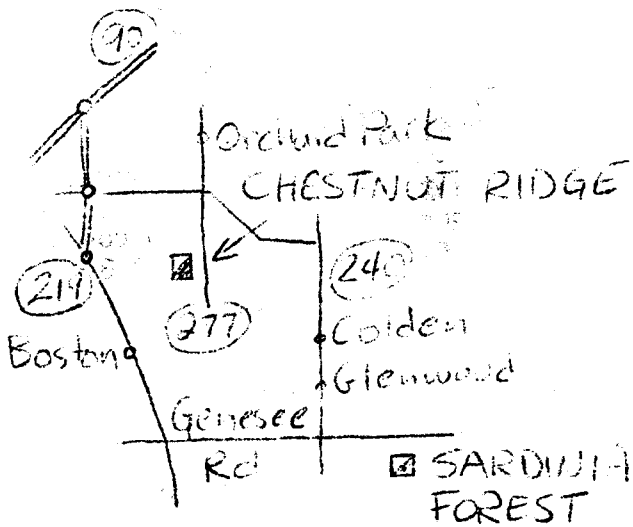 90
Orchard Park
CHESTNUT RIDGE
240
219
277
Colden
Boston
Glenwood
Genesee
Rd
SARDINIA
FOREST